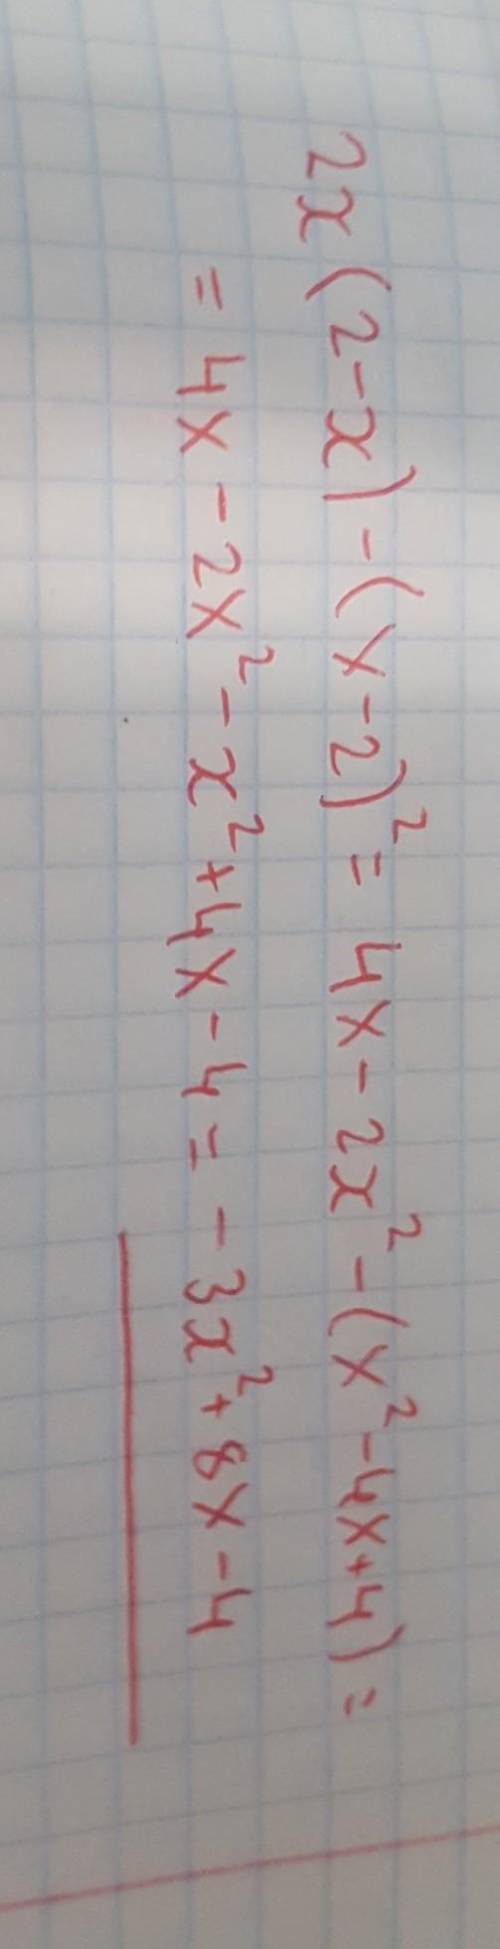 2x(2-x)-(x-2)²=4x-2x²-(x²-4x+4)=
=4x-2x²-x²+4x-4=-3x²+8x-4